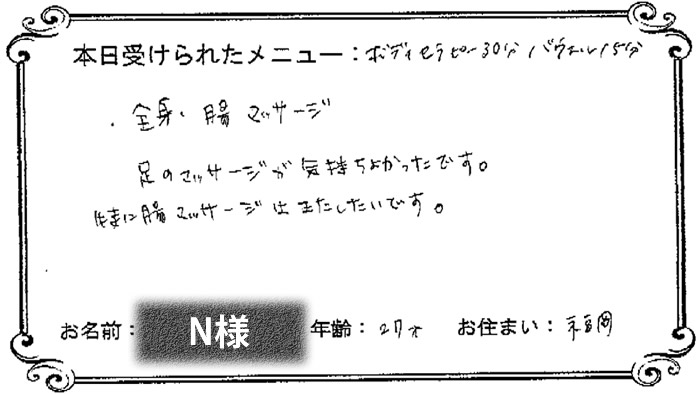 本日受けられたメニュー：ボディセラピー30分 バウエル15分
・全身、腸マッサージ
足のマッサージが気持ちよかったです。
特に腸マッサージはまたしたいです。
お名前： N様 年齢：27才 お住まい：福岡